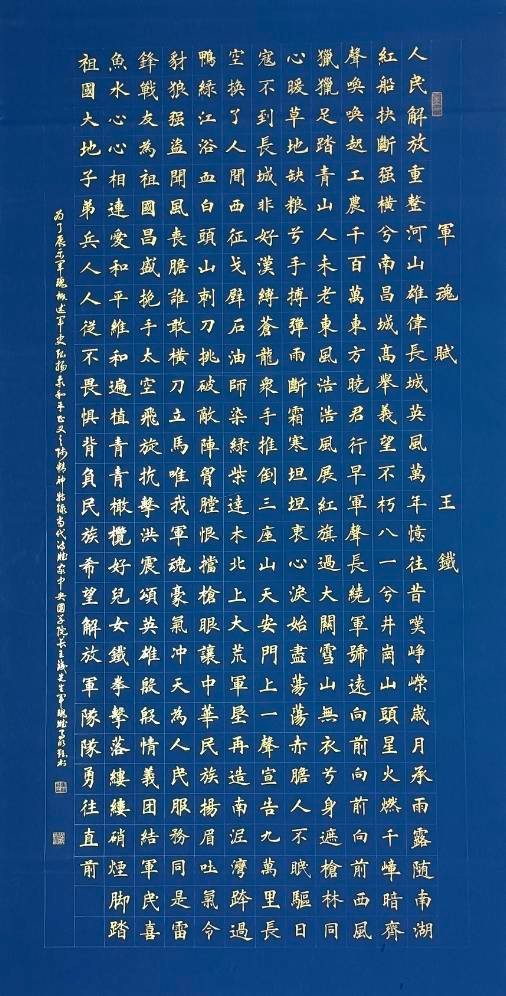 軍魂賦 王鐵
人民解放重整河山雄偉長城英風萬年憶往昔嘆崢嶸歲月承雨露随南湖
紅船抉斷强橫兮南昌城高舉義望不朽八一兮井崗山頭星火燃千嶂暗齊
聲喚喚起工農千百萬東方曉君行早軍聲長繞軍號遠向前向前向前西風
獵獵足踏青山人未老東風浩浩風展紅旗過大關雪山無衣兮身遮槍林同
心暖草地缺粮兮手搏彈雨斷霜寒坦坦衷心淚始盡蕩蕩赤膽人不眠驅日
寇不到長城非好漢縛蒼龍衆手推倒三座山天安門上一聲宣告九萬里長
空换了人間西征戈壁石油師染綠柴達木北上大荒軍墾再造南泥灣跨過
鴨綠江浴血白頭山刺刀挑破敵陣胷膛恨擋槍眼讓中華民族揚眉吐氣令
豺狼强盗聞風喪膽誰敢橫刀立馬唯我軍魂豪氣冲天為人民服務同是雷
鋒戰友為祖國昌盛挽手太空飛旋抗擊洪震頌英雄殷殷情義团結軍民喜
魚水心心相連愛和平維和遍植青青橄欖好兒女鐵拳擊落縷縷硝煙脚踏
祖國大地子弟兵人人從不畏惧背負民族希望解放軍隊隊勇往直前
为了展示军魂概述军史弘扬和平正义之师精神特录当代诗赋家中央國学院长王鐵先生军魂赋